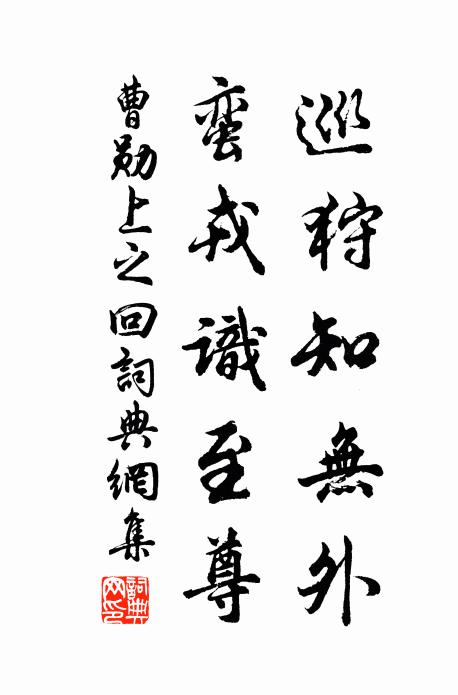 巡狩知無外
蛮戎識至尊
曹勛上之回詞典網集
詞典網印